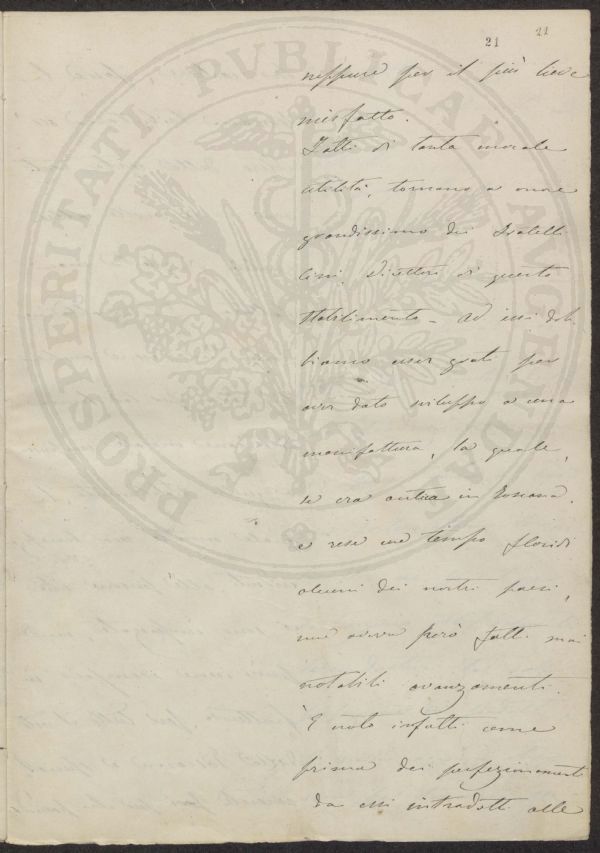 21 21
neppure per il più lieve
misfatto.
Fatti di tanta morale
utilità, tornano a onore
grandissimo dei Fratelli
Cini, Direttori di questo
stabilimento - Ad essi dob
biamo esser grati per
aver dato sviluppo a una
manifattura, la quale,
se era antica in Toscana,
e rese un tempo floridi
alcuni dei nostri paesi,
non aveva però fatti mai
notabili avanzamenti.
È noto infatti come
prima dei perfezionamenti
da essi introdotti alle
PROSPERITATI PVBLICAE AVGENDAE